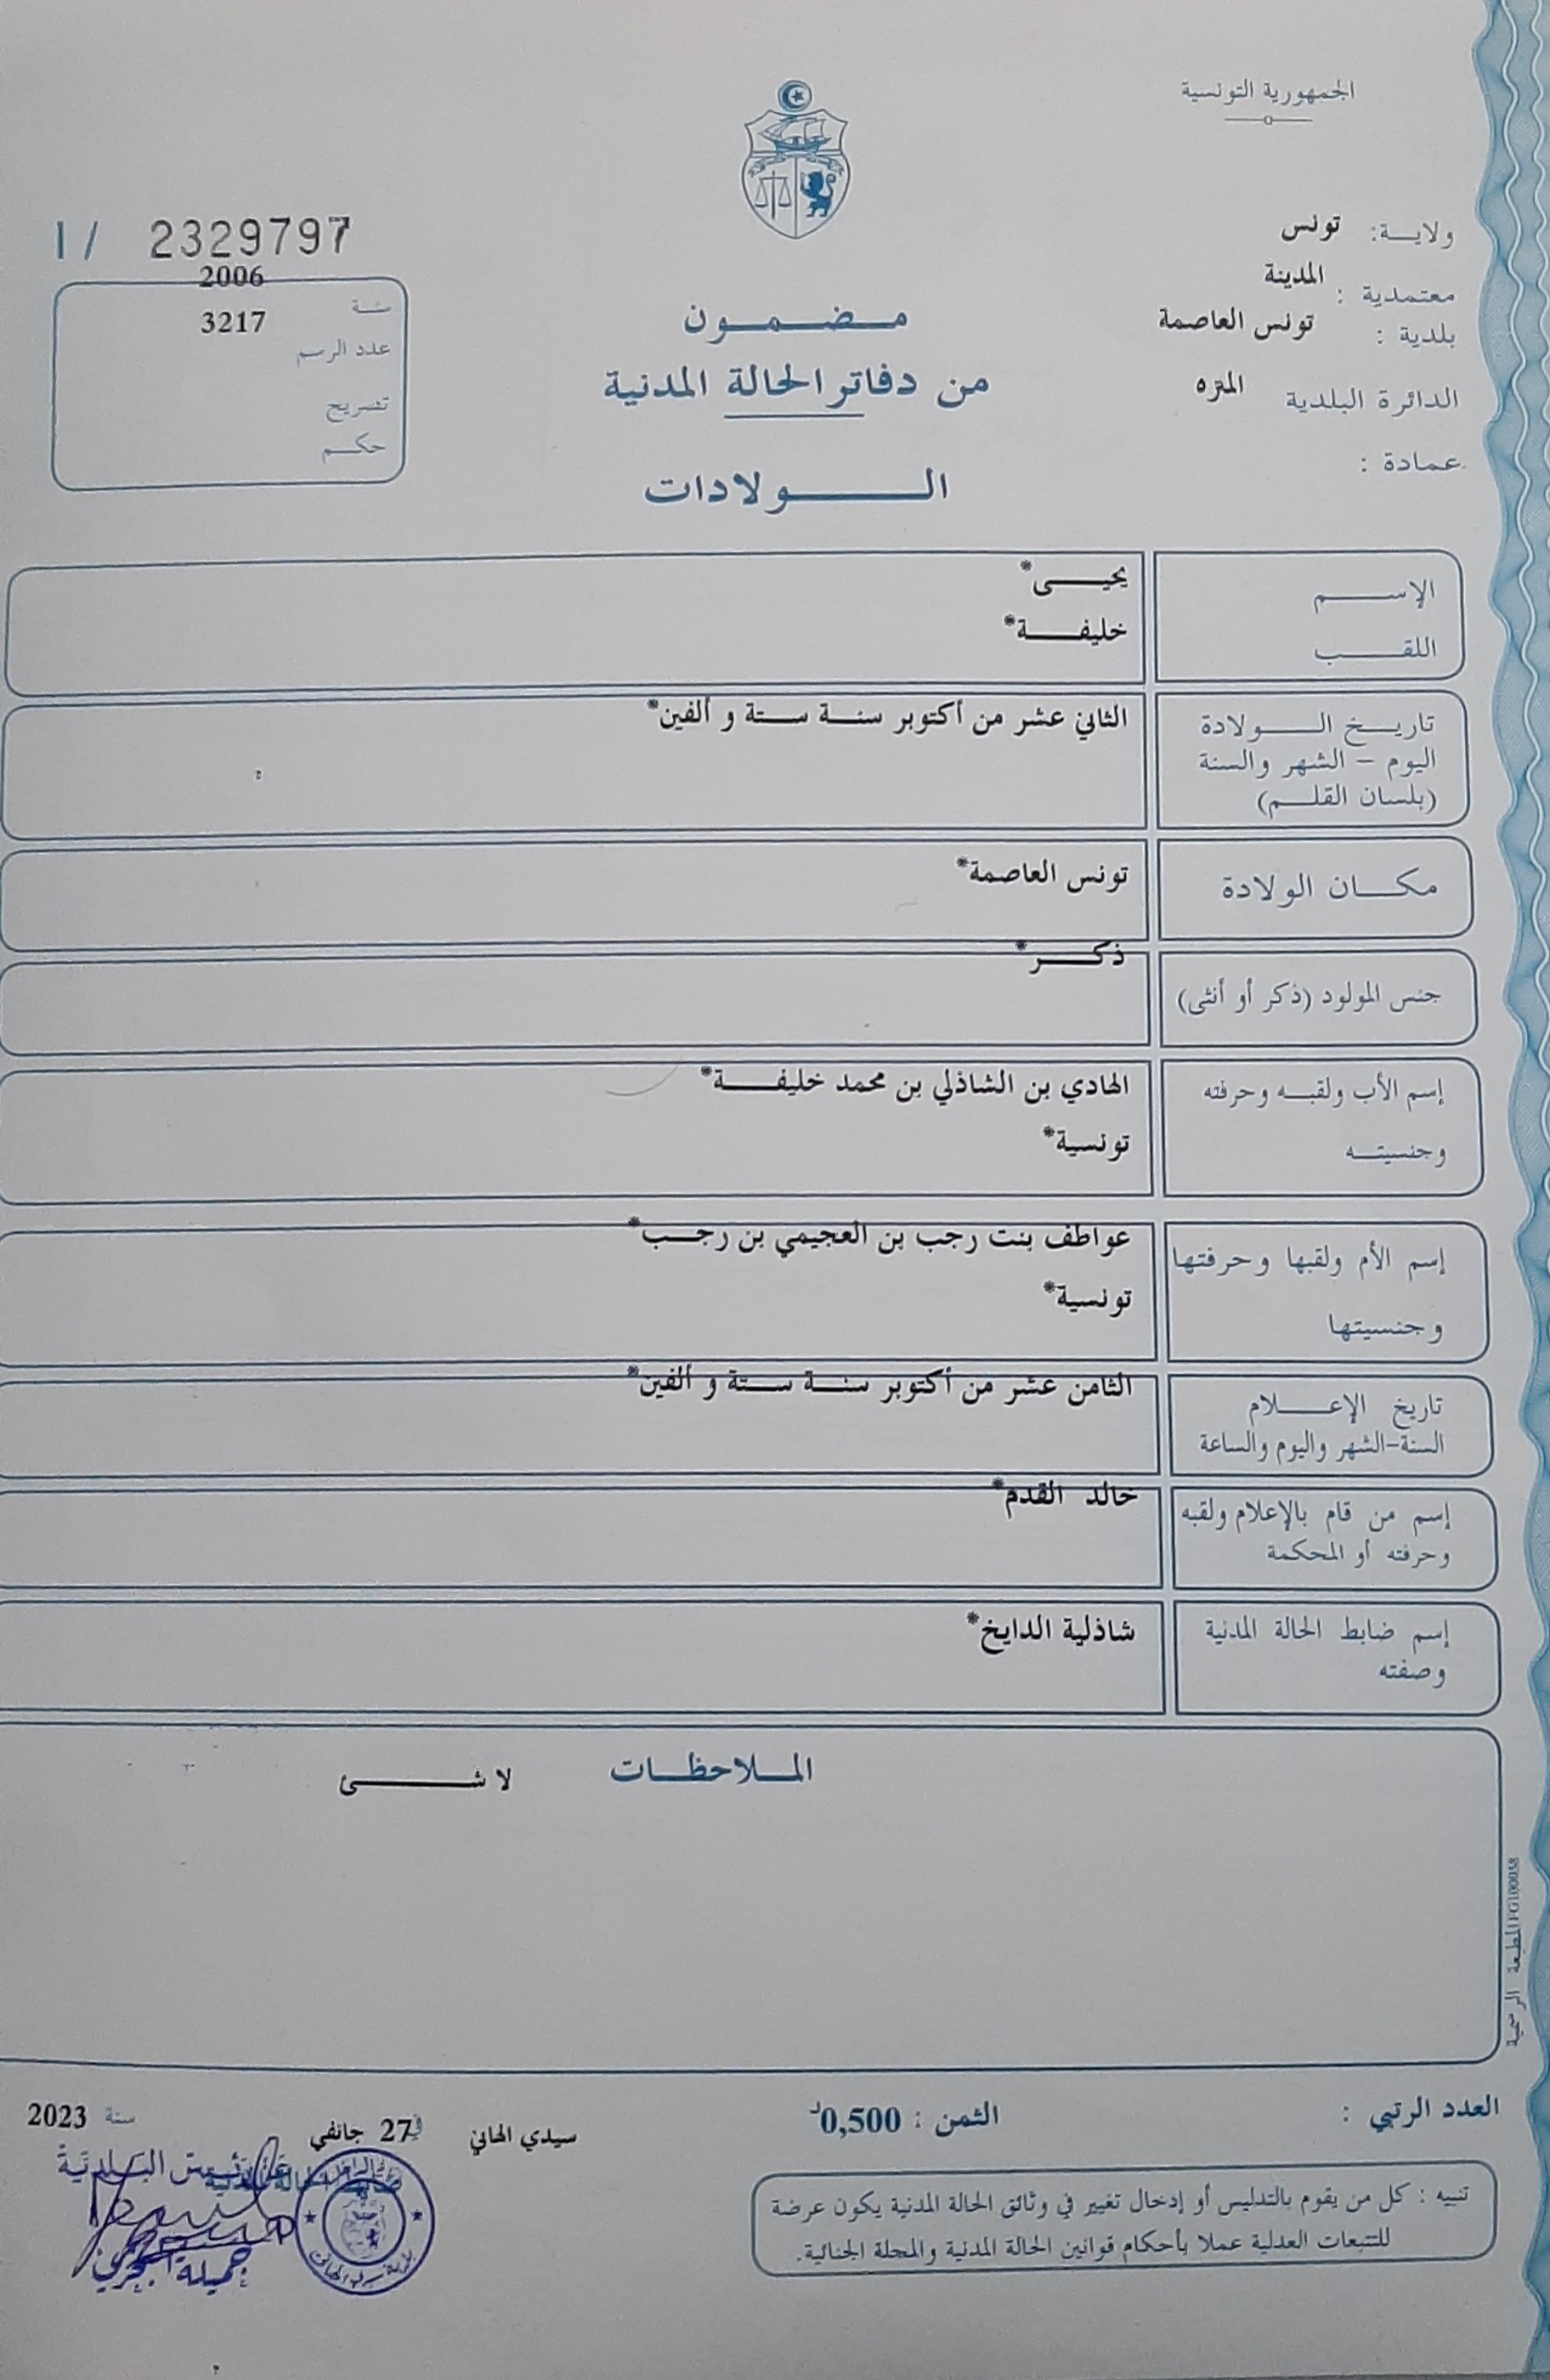 الجمهورية التونسية
ولاية: تونس
معتمدية : المدينة
بلدية : تونس العاصمة
الدائرة البلدية المتره
عمادة :
I / 2329797
2006
سنة
3217
عدد الرسم
تصريح
حكم
مضمون
من دفاتر الحالة المدنية
الولادات
الإسم يحيى*
اللقب خليفة*
تاريخ الولادة الثاني عشر من أكتوبر سنة ستة و ألفين*
اليوم – الشهر والسنة
(بلسان القلم)
مكان الولادة تونس العاصمة*
جنس المولود (ذكر أو أنثى) ذكر*
إسم الأب ولقبه وحرفته الهادي بن الشاذلي بن محمد خليفة*
وجنسيته تونسية*
إسم الأم ولقبها وحرفتها عواطف بنت رجب بن العجيمي بن رجب*
وجنسيتها تونسية*
تاريخ الإعلام الثامن عشر من أكتوبر سنة ستة و ألفين*
السنة-الشهر واليوم والساعة
إسم من قام بالإعلام ولقبه خالد القدم*
وحرفته أو المحكمة
إسم ضابط الحالة المدنية شاذلية الدايخ*
وصفته
الملاحظات لا شئ
المطبعة الرسمية FG100058
العدد الرتبي :
الثمن : 0,500د
سيدي الهاني في 27 جانفي سنة 2023
عن رئيس البلدية
ضابط الحالة المدنية
جميلة
بلدية سيدي الهاني
تنبيه : كل من يقوم بالتدليس أو إدخال تغيير في وثائق الحالة المدنية يكون عرضة
للتتبعات العدلية عملا بأحكام قوانين الحالة المدنية والمجلة الجنائية.